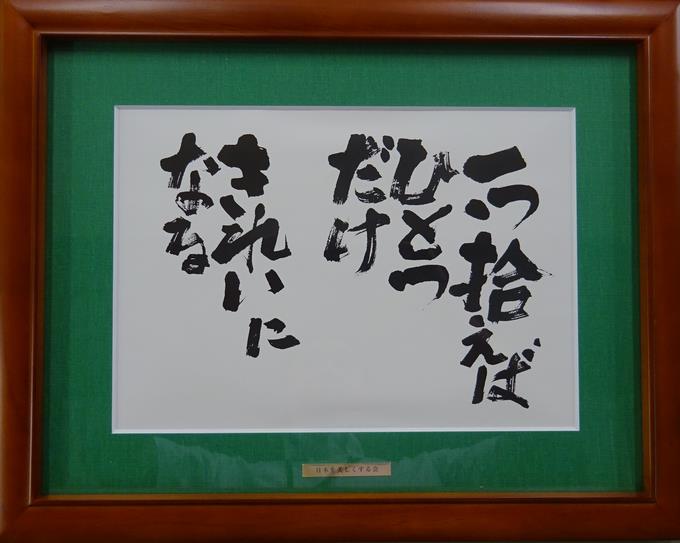 一つ拾えば
ひとつ
だけ
きれいに
なる
日本を美しくする会